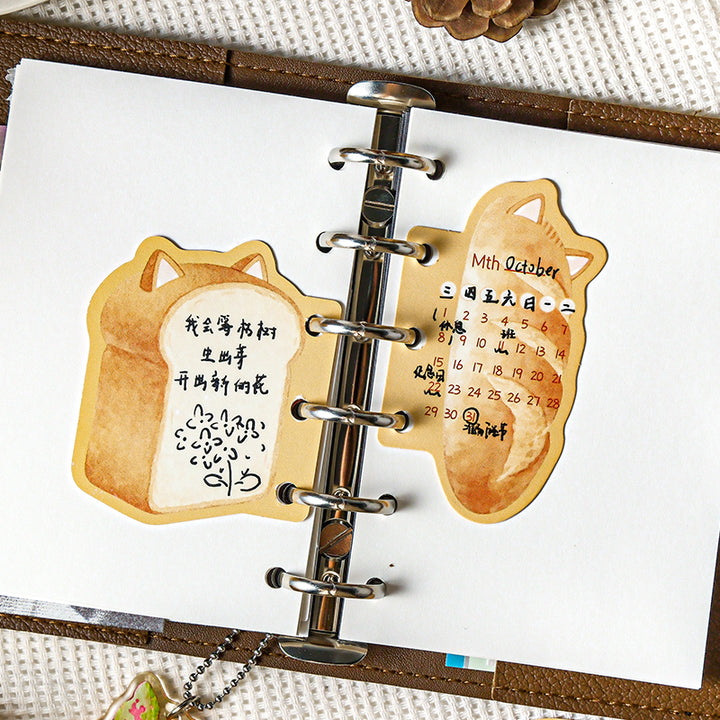 我会等枯树
生出芽
开出新的花
Mth October
三 四 五 六 日 一 二
1 2 3 4 5 6 7
休息 班
8 9 10 11 12 13 14
15 16 17 18 19 20 21
22 23 24 25 26 27 28
29 30 31